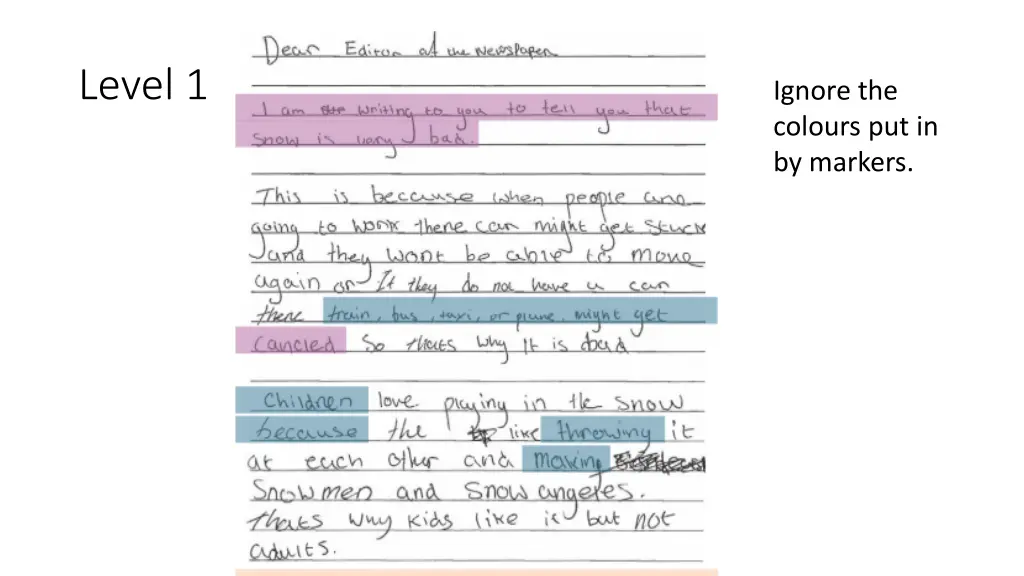 Level 1
Ignore the
colours put in
by markers.
Dear Editor of the Newspaper
I am writing to you to tell you that
snow is very bad.
This is because when people are
going to work there car might get stuck
and they wont be able to move
again or If they do not have a car
there train, bus, taxi, or plane. might get
cancled So thats why It is bad
Children love playing in the snow
because the like throwing it
at each other and making
Snowmen and snow angeles.
thats why kids like it but not
adults.